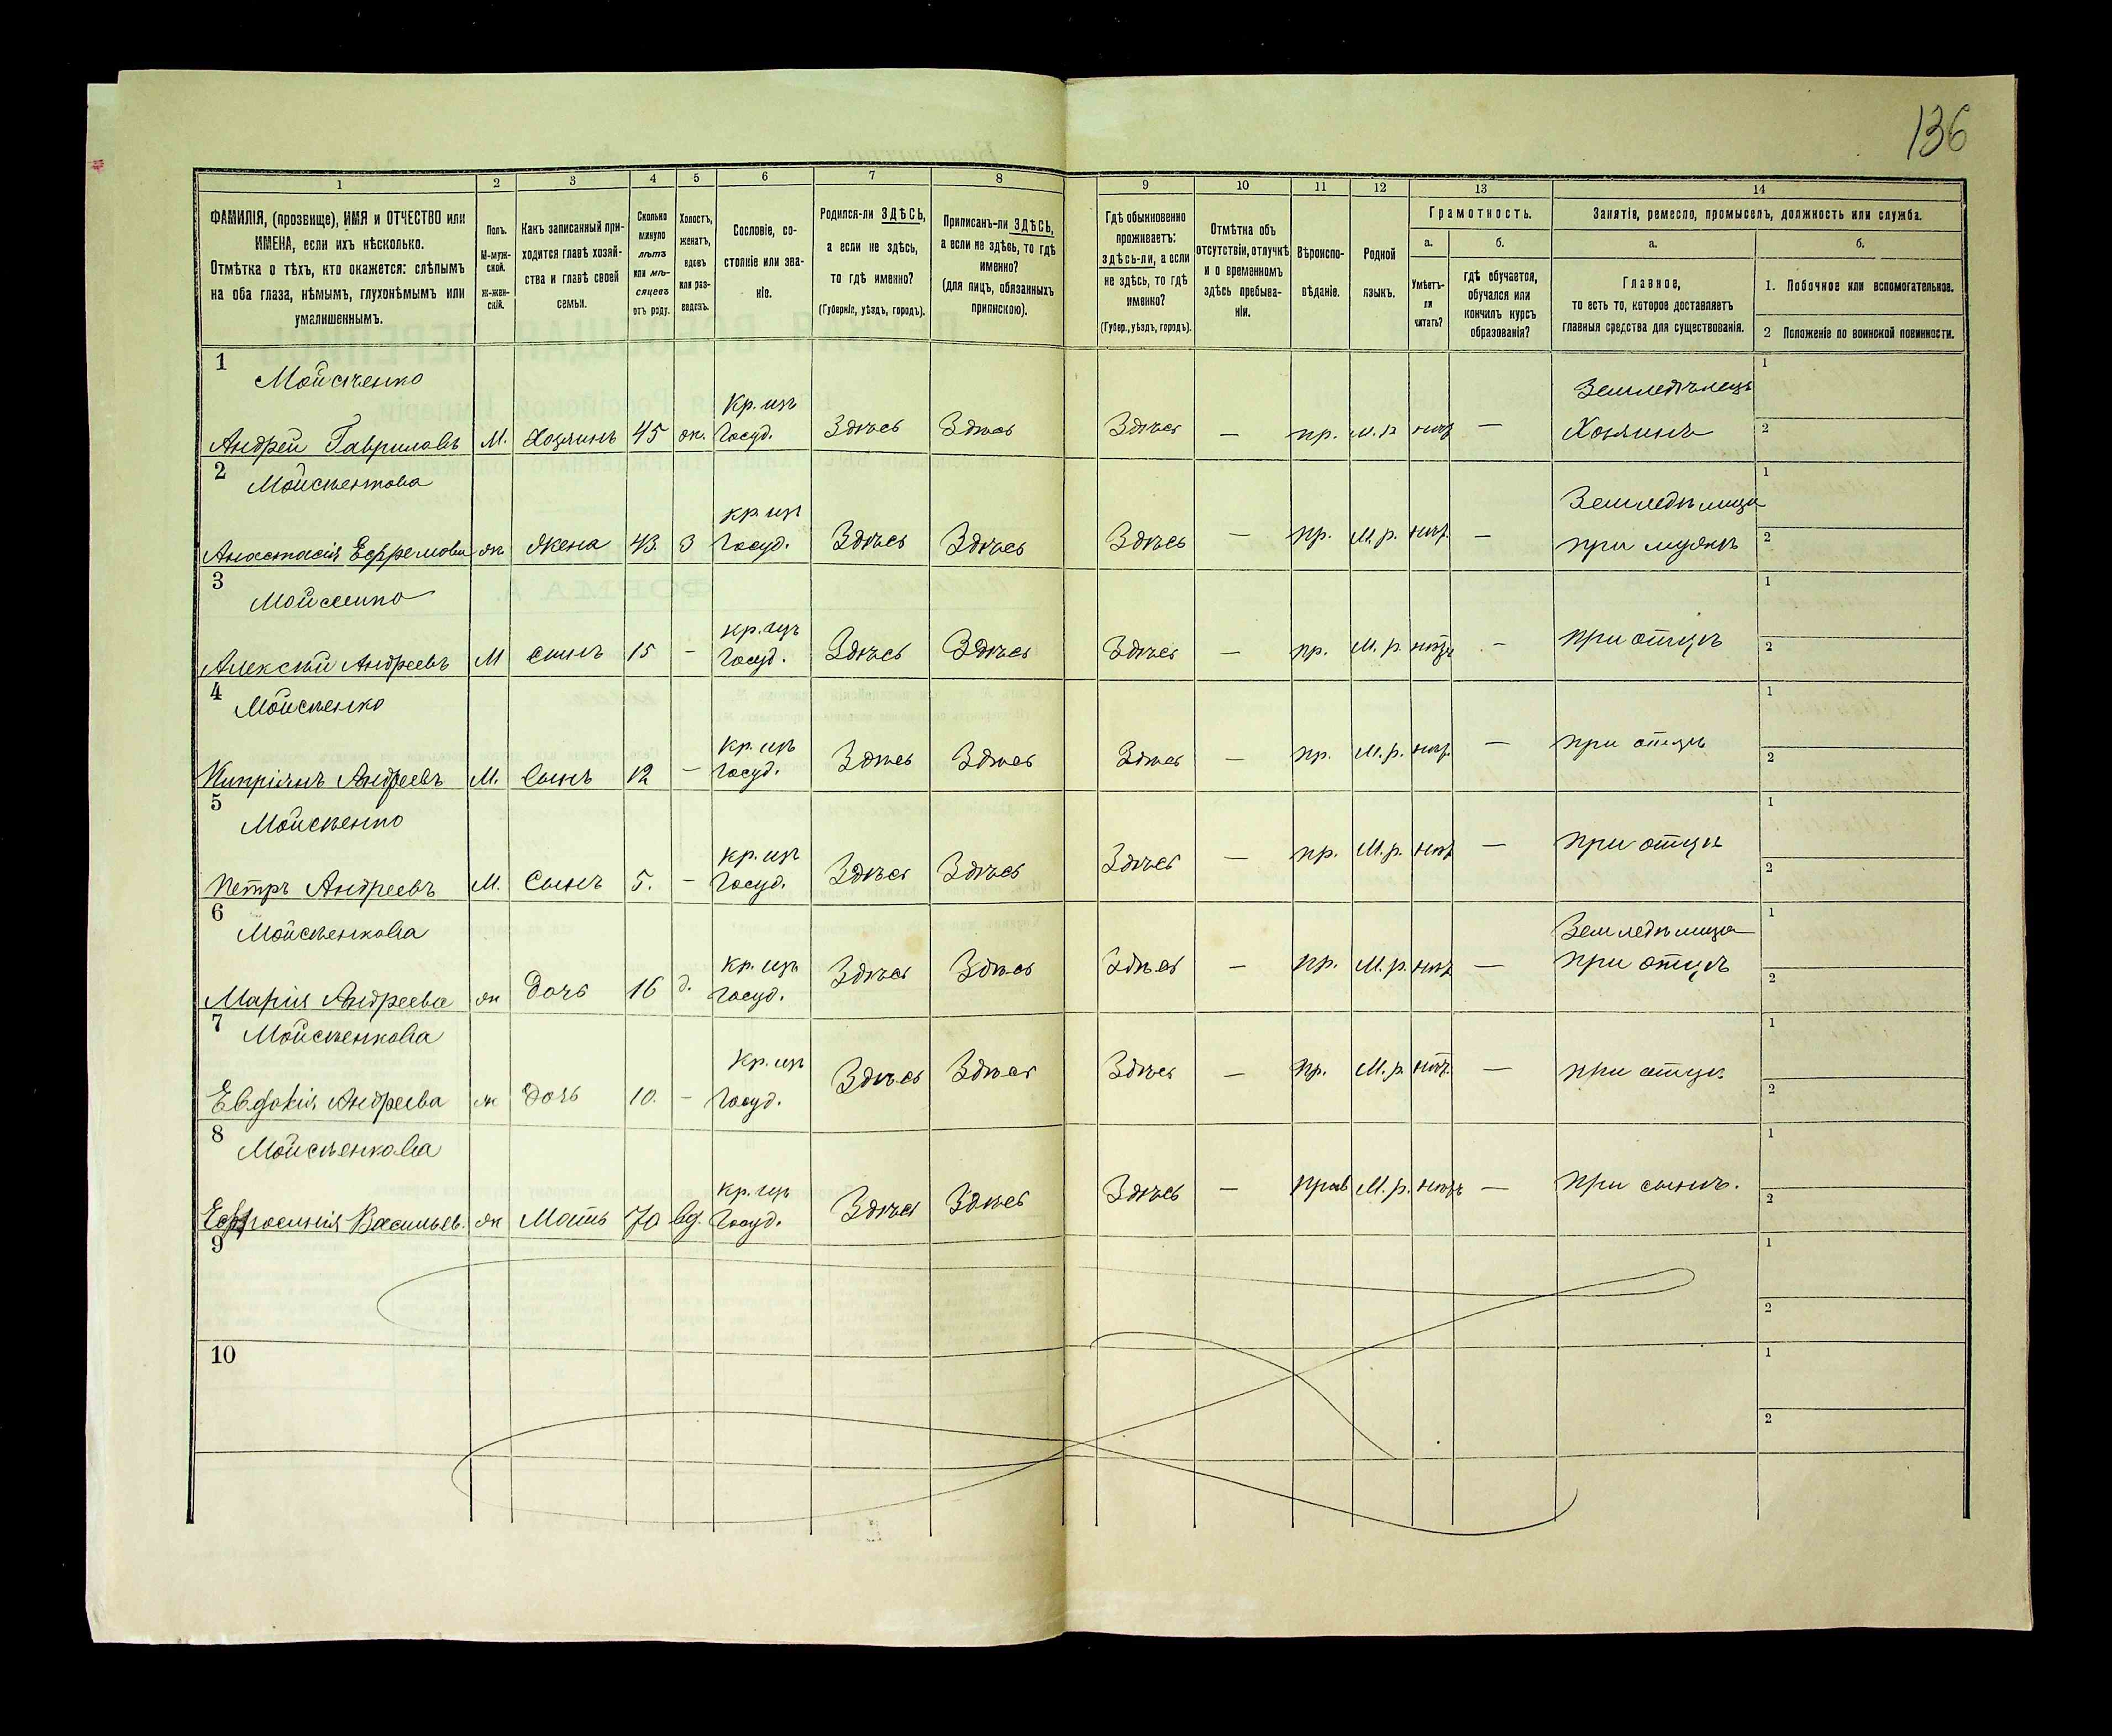 136
1 2 3 4 5 6 7 8 9 10 11 12 13 14
ФАМИЛІЯ, (прозвище), ИМЯ и ОТЧЕСТВО или
ИМЕНА, если ихъ нѣсколько.
Отмѣтка о тѣхъ, кто окажется: слѣпымъ
на оба глаза, нѣмымъ, глухонѣмымъ или
умалишеннымъ.
Полъ.
М-муж-
ской.
Ж-жен-
скій.
Какъ записанный при-
ходится главѣ хозяй-
ства и главѣ своей
семьи.
Сколько
минуло
лѣтъ
или мѣ-
сяцевъ
отъ роду.
Холостъ,
женатъ,
вдовъ
или раз-
веденъ.
Сословіе, со-
стояніе или зва-
ніе.
Родился-ли ЗДѢСЬ,
а если не здѣсь,
то гдѣ именно?
(Губернія, уѣздъ, городъ).
Приписанъ-ли ЗДѢСЬ,
а если не здѣсь, то гдѣ
именно?
(для лицъ, обязанныхъ
припискою).
Гдѣ обыкновенно
проживаетъ:
здѣсь-ли, а если
не здѣсь, то гдѣ
именно?
(Губер., уѣздъ, городъ).
Отмѣтка объ
отсутствіи, отлучкѣ
и о временномъ
здѣсь пребыва-
ніи.
Вѣроиспо-
вѣданіе.
Родной
языкъ.
Грамотность.
а.
Умѣетъ-
ли
читать?
б.
гдѣ обучается,
обучался или
кончилъ курсъ
образованія?
Занятіе, ремесло, промыселъ, должность или служба.
а.
Главное,
то есть то, которое доставляетъ
главныя средства для существованія.
б.
1. Побочное или вспомогательное.
2 Положеніе по воинской повинности.
1 Мойсѣенко Кр. изъ Земледѣлецъ 1
Андрей Гавриловъ М. Хозяинъ 45 ж. Госуд. Здѣсь Здѣсь Здѣсь — пр. М. р. нѣт — Хозяинъ 2
2 Мойсѣенкова кр. из Земледѣлица 1
Анастасія Ефремова ж Жена 43 З Госуд. Здѣсь Здѣсь Здѣсь — пр. М. р. нѣт. — при мужѣ 2
3 Мойсеенко кр. изъ 1
Алексѣй Андреевъ М сынъ 15 - Госуд. Здѣсь Здѣсь Здѣсь — пр. М. р. нѣтъ - при отцѣ 2
4 Мойсѣенко Кр. изъ 1
Кипріянъ Андреевъ М. Сынъ 12 — Госуд. Здѣсь Здѣсь Здѣсь — пр. М. р. нѣт. — при отцѣ 2
5 Мойсѣенко кр. из 1
Петръ Андреевъ М. Сынъ 5. — Госуд. Здѣсь Здѣсь Здѣсь — пр. М. р. нѣт — при отцѣ 2
6 Мойсѣенкова кр. изъ Земледѣлица 1
Марія Андреева ж Дочь 16 д. Госуд. Здѣсь Здѣсь Здѣсь — пр. М. р. нѣт — при отцѣ 2
7 Мойсѣенкова Кр. изъ 1
Евдокія Андреева ж Дочь 10. - Госуд. Здѣсь Здѣсь Здѣсь — пр. М. р. нѣт. — при отцѣ 2
8 Мойсѣенкова кр. изъ 1
Ефросинія Васильев. ж Мать 70 вд. Госуд. Здѣсь Здѣсь Здѣсь — прав М. р. нѣтъ — при сынѣ. 2
9 1
2
10 1
2